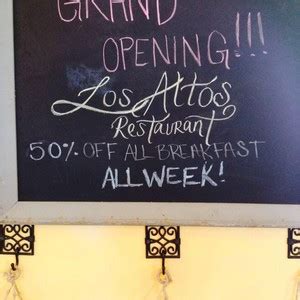 GRAND
OPENING!!!
Los Altos
Restaurant
50% OFF ALL BREAKFAST
ALL WEEK!